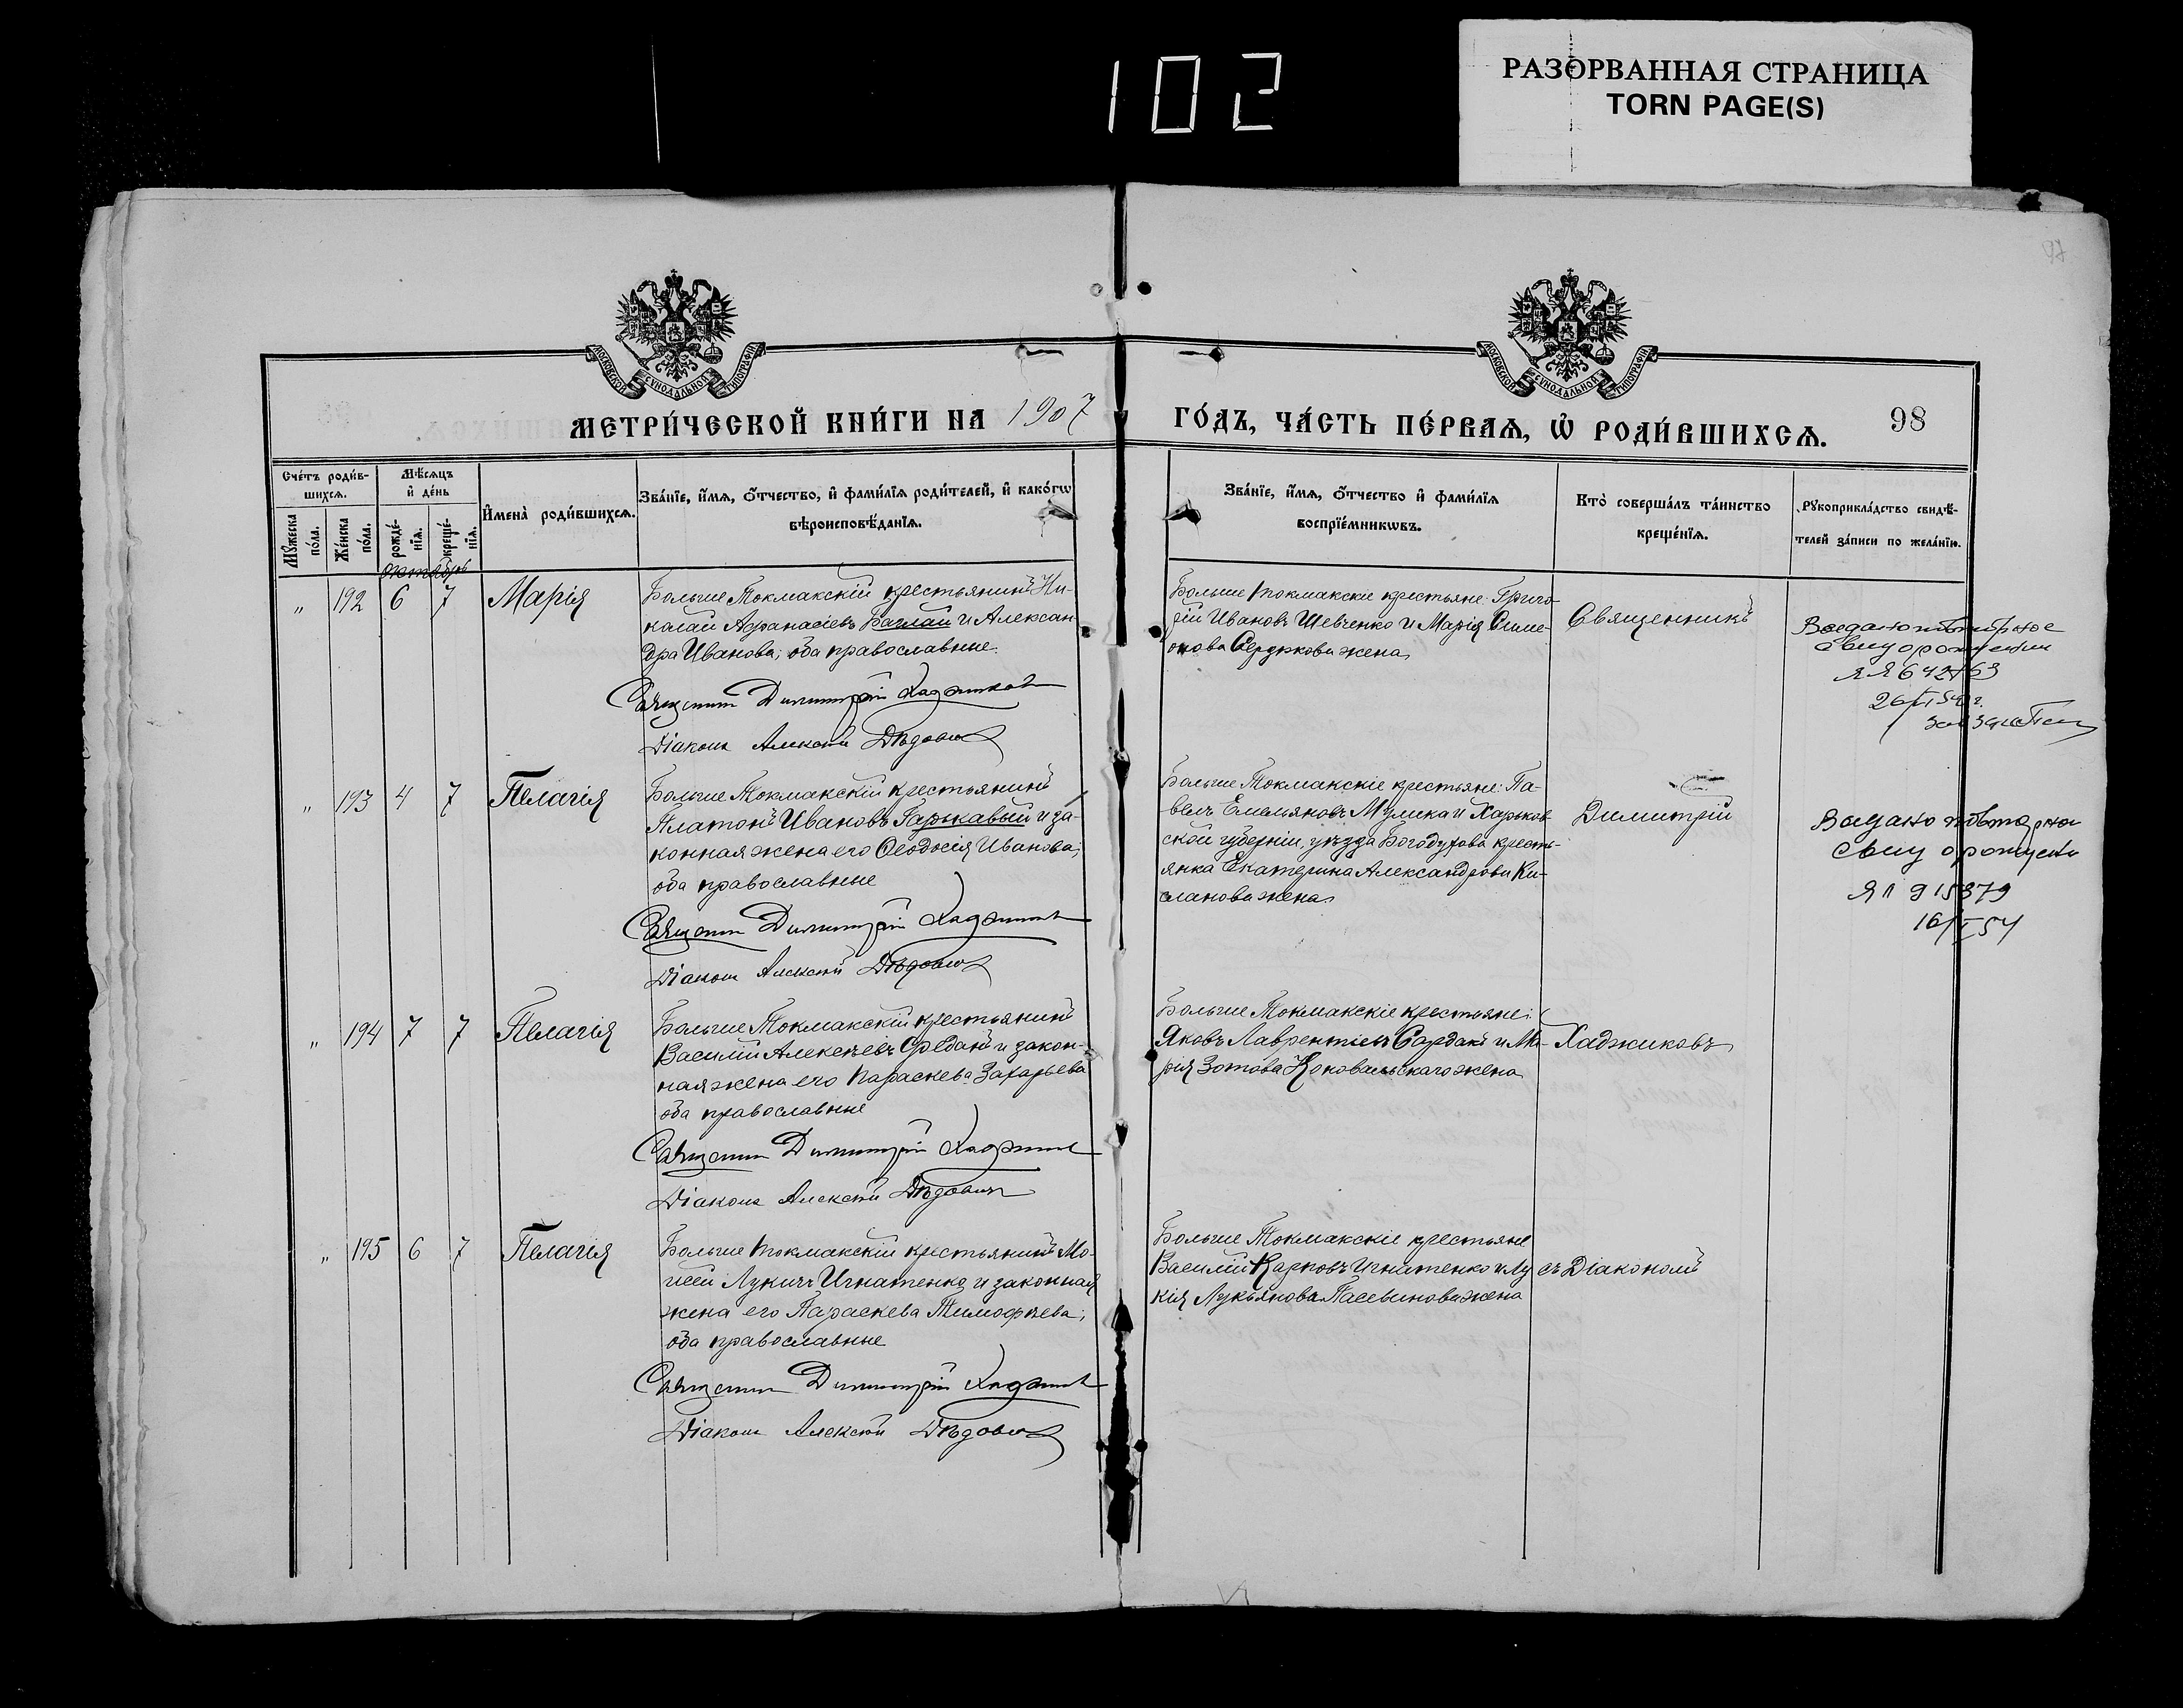 102
РАЗОРВАННАЯ СТРАНИЦА
TORN PAGE(S)
97
МОСКОВСКОЙ СѴНОДАЛЬНОЙ ТИПОГРАФІИ
МОСКОВСКОЙ СѴНОДАЛЬНОЙ ТИПОГРАФІИ
МЕТРИ́ЧЕСКОЙ КНИ́ГИ НА 1907
ГО́ДЪ, ЧА́СТЬ ПЕ́РВАѦ, Ѡ҆ РОДИ́ВШИХСѦ.
98
Сче́тъ роди́в-
шихсѧ.
Мѣ́сѧцъ
и҆ де́нь
И҆мена̀ роди́вшихсѧ.
Зва́нїе, и҆́мѧ, ѻ҆́тчество, и҆ фами́лїѧ роди́телей, и҆ како́гѡ
вѣроисповѣ́данїѧ.
Мꙋ́жеска
по́ла.
Же́нска
по́ла.
рожде́-
нїѧ.
креще́-
нїѧ.
Зва́нїе, и҆́мѧ, ѻ҆́тчество и҆ фами́лїѧ
воспрїе́мникѡвъ.
Кто̀ соверша́лъ та́инство
креще́нїѧ.
Рꙋкоприкла́дство свидѣ́-
телей за́писи по жела́нїю.
октябрь
" 192 6 7 Марія
Больше Токмакскій крестьянинъ Ни-
колай Афанасіевъ Баглай и Алексан-
дра Иванова; оба православные.
Священникъ Димитрій Хаджиковъ
Діаконъ Алексій Дѣдовичъ
Больше Токмакскіе крестьяне: Григо-
рій Ивановъ Шевченко и Марія Симе-
онова Сердюкова жена
Священникъ
Выдано повторное
свид о рождении
ЯЯ 642763
" 193 4 7 Пелагія
Больше Токмакскій крестьянинъ
Платонъ Ивановъ Гарькавый и за-
конная жена его Ѳеодосія Иванова;
оба православные
Священникъ Димитрій Хаджиковъ
Діаконъ Алексій Дѣдовичъ
Больше Токмакскіе крестьяне: Па-
велъ Емельяновъ Мулика и Харьков-
ской губерніи, уѣзда Богодухова кресть-
янка Екатерина Александрова Ки-
сланова жена
Димитрій
Выдано повторно
свид о рождении
ЯП 915379
16/I 54
" 194 7 7 Пелагія
Больше Токмакскій крестьянинъ
Василій Алексѣевъ и закон-
ная жена его Параскева Захарьева
оба православные
Священникъ Димитрій Хаджиковъ
Діаконъ Алексій Дѣдовичъ
Больше Токмакскіе крестьяне:
Яковъ Лаврентіевъ Сардакъ и Ма-
рія Зотова Коновальскаго жена
Хаджиковъ
" 195 6 7 Пелагія
Больше Токмакскій крестьянинъ Мо-
исей Лукичъ Игнатенко и законная
жена его Параскева Тимофѣева;
оба православные
Священникъ Димитрій Хаджиковъ
Діаконъ Алексій Дѣдовичъ
Больше Токмакскіе крестьяне
Василій Карповъ Игнатенко и Лу-
кія Лукьянова жена
съ Діакономъ